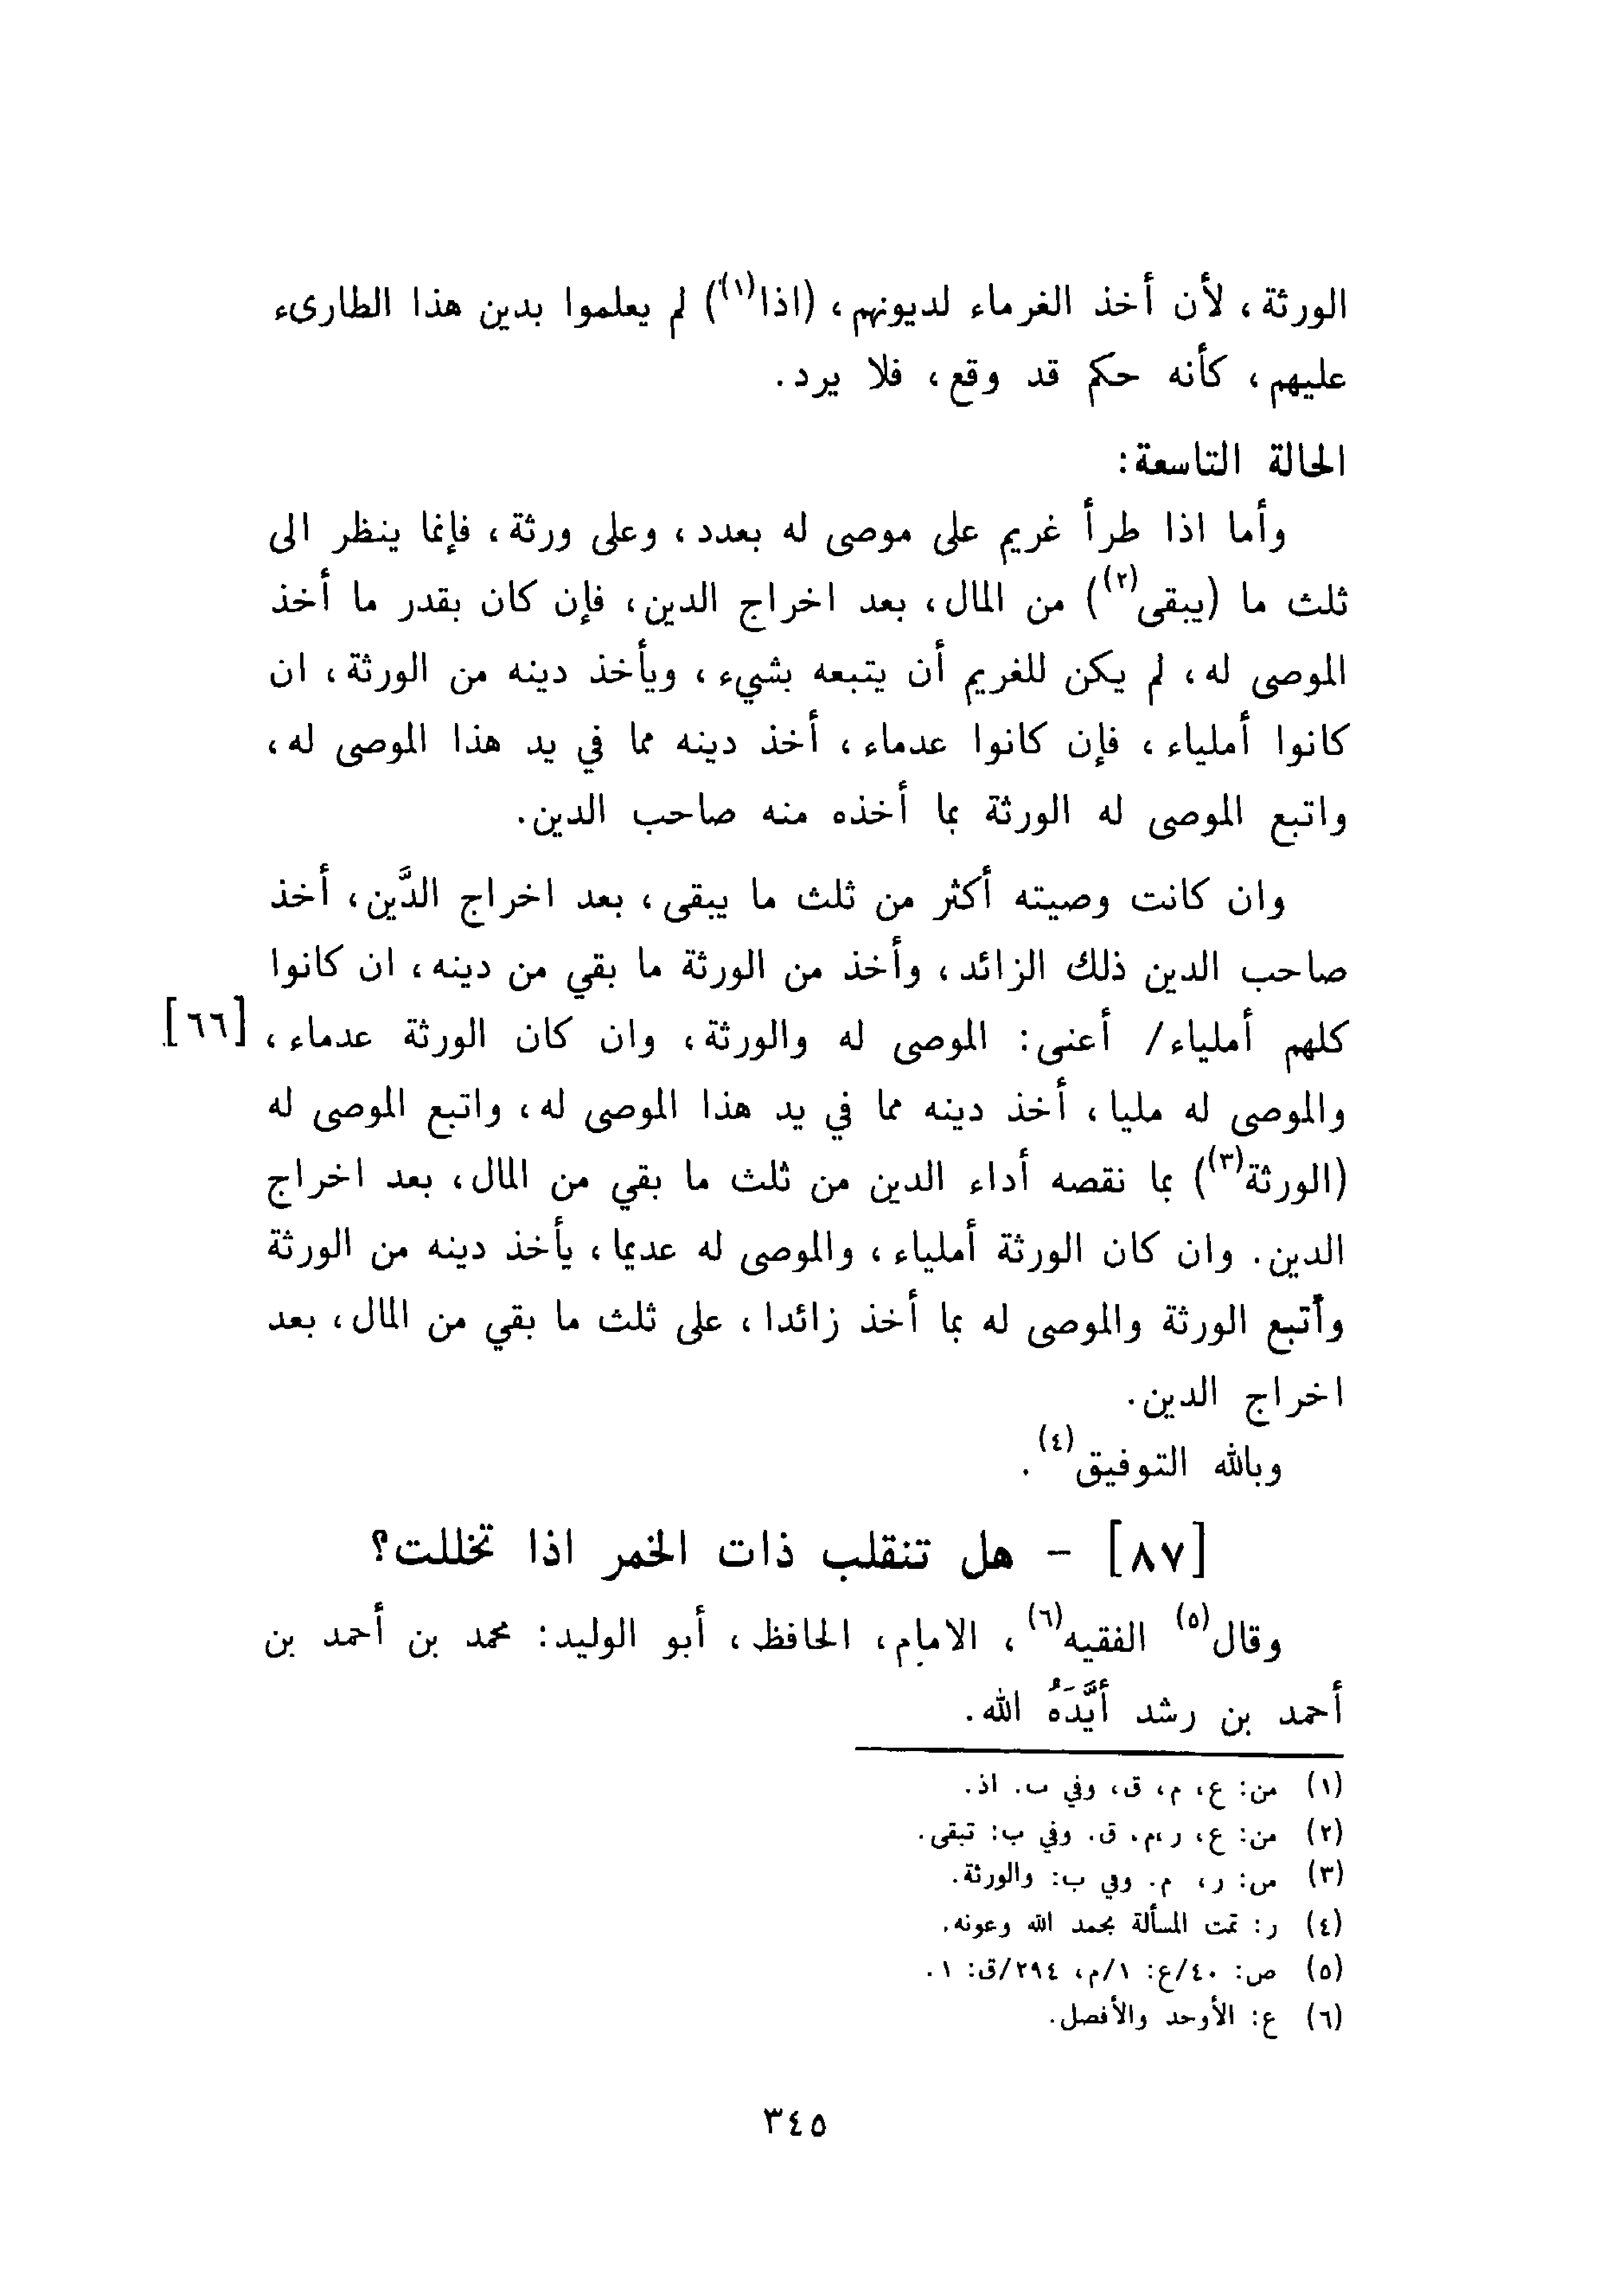 الورثة، لأن أخذ الغرماء لديونهم، (اذا(١)) لم يعلموا بدين هذا الطارىء
عليهم، كأنه حكم قد وقع، فلا يرد.
الحالة التاسعة:
وأما اذا طرأ غريم على موصى له بعدد، وعلى ورثة، فإنما ينظر الى
ثلث ما (يبقى(٢)) من المال، بعد اخراج الدين، فإن كان بقدر ما أخذ
الموصى له، لم يكن للغريم أن يتبعه بشيء، ويأخذ دينه من الورثة، ان
كانوا أملياء، فإن كانوا عدماء، أخذ دينه مما في يد هذا الموصى له،
واتبع الموصى له الورثة بما أخذه منه صاحب الدين.
وان كانت وصيته أكثر من ثلث ما يبقى، بعد اخراج الدَّين، أخذ
صاحب الدين ذلك الزائد، وأخذ من الورثة ما بقي من دينه، ان كانوا
كلهم أملياء/ أعنى: الموصى له والورثة، وان كان الورثة عدماء، [٦٦]
والموصى له مليا، أخذ دينه مما في يد هذا الموصى له، واتبع الموصى له
(الورثة(٣)) بما نقصه أداء الدين من ثلث ما بقي من المال، بعد اخراج
الدين. وان كان الورثة أملياء، والموصى له عديما، يأخذ دينه من الورثة
وأتبع الورثة والموصى له بما أخذ زائدا، على ثلث ما بقي من المال، بعد
اخراج الدين.
وبالله التوفيق(٤).
[٨٧] - هل تنقلب ذات الخمر اذا تخللت؟
وقال(٥) الفقيه(٦)، الامام، الحافظ، أبو الوليد: محمد بن أحمد بن
أحمد بن رشد أيَّدَهُ الله.
(١) من: ع، م، ق، وفي ب. اذ.
(٢) من: ع، ر،م. ق. وفي ب: تبقى.
(٣) من: ر، م. وفي ب: والورثة.
(٤) ر: تمت المسألة بحمد الله وعونه.
(٥) ص: ٤٠/ع: ١/م، ٢٩٤/ق: ١.
(٦) ع: الأوحد والأفصل.
٣٤٥